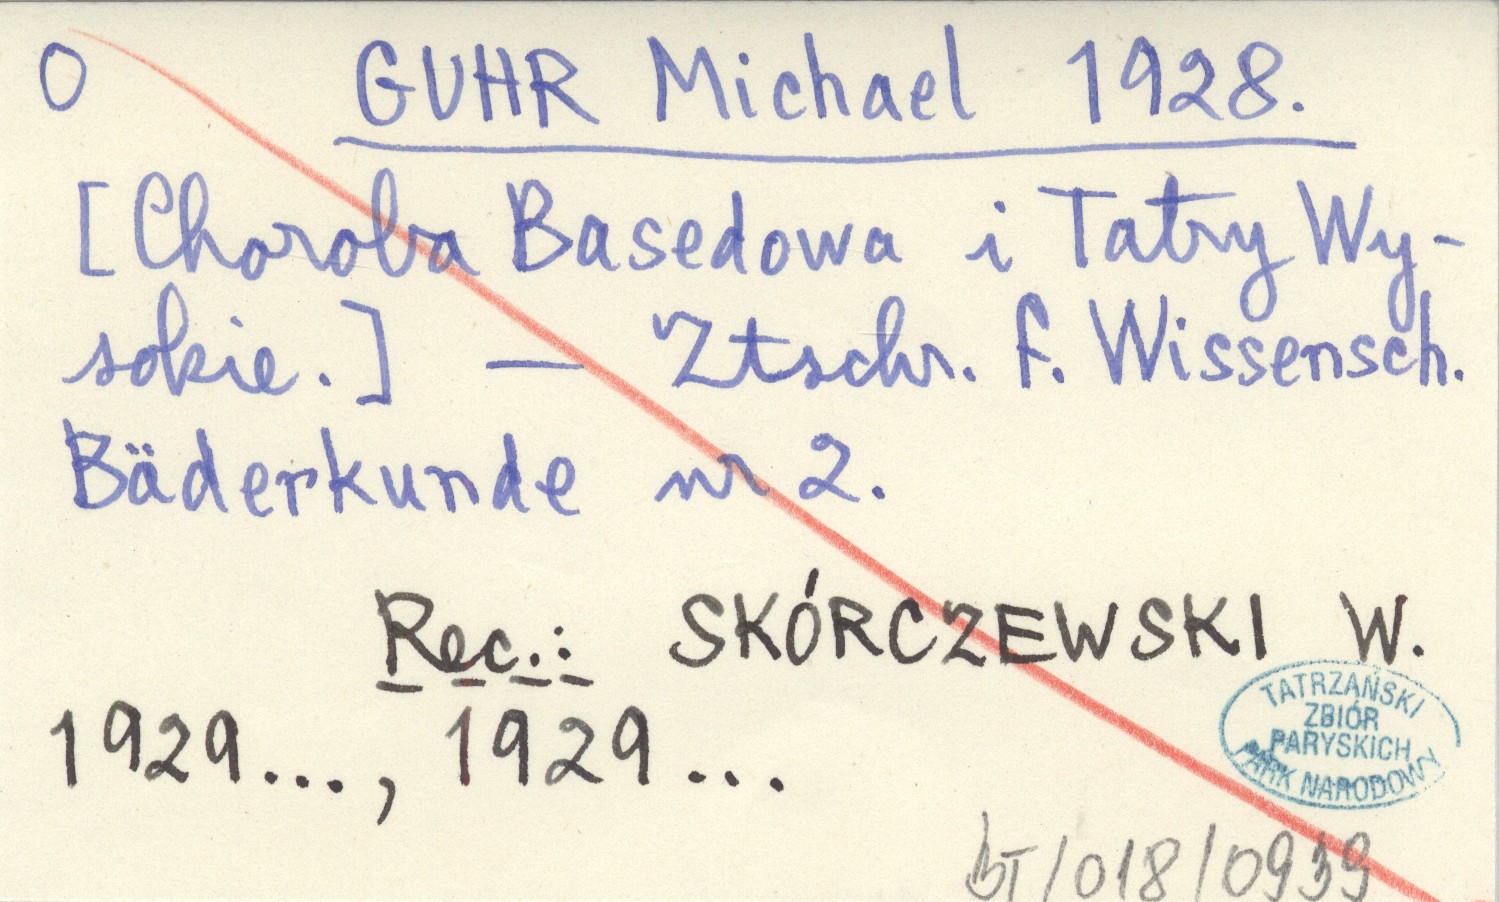 O GUHR Michael 1928.
[Choroba Basedowa i Tatry Wy-
sokie.] — Ztschr. f. Wissensch.
Bäderkunde nr 2.
Rec.: SKÓRCZEWSKI W.
1929..., 1929...
TATRZAŃSKI
ZBIÓR
PARYSKICH
PARK NARODOWY
BT/018/0939